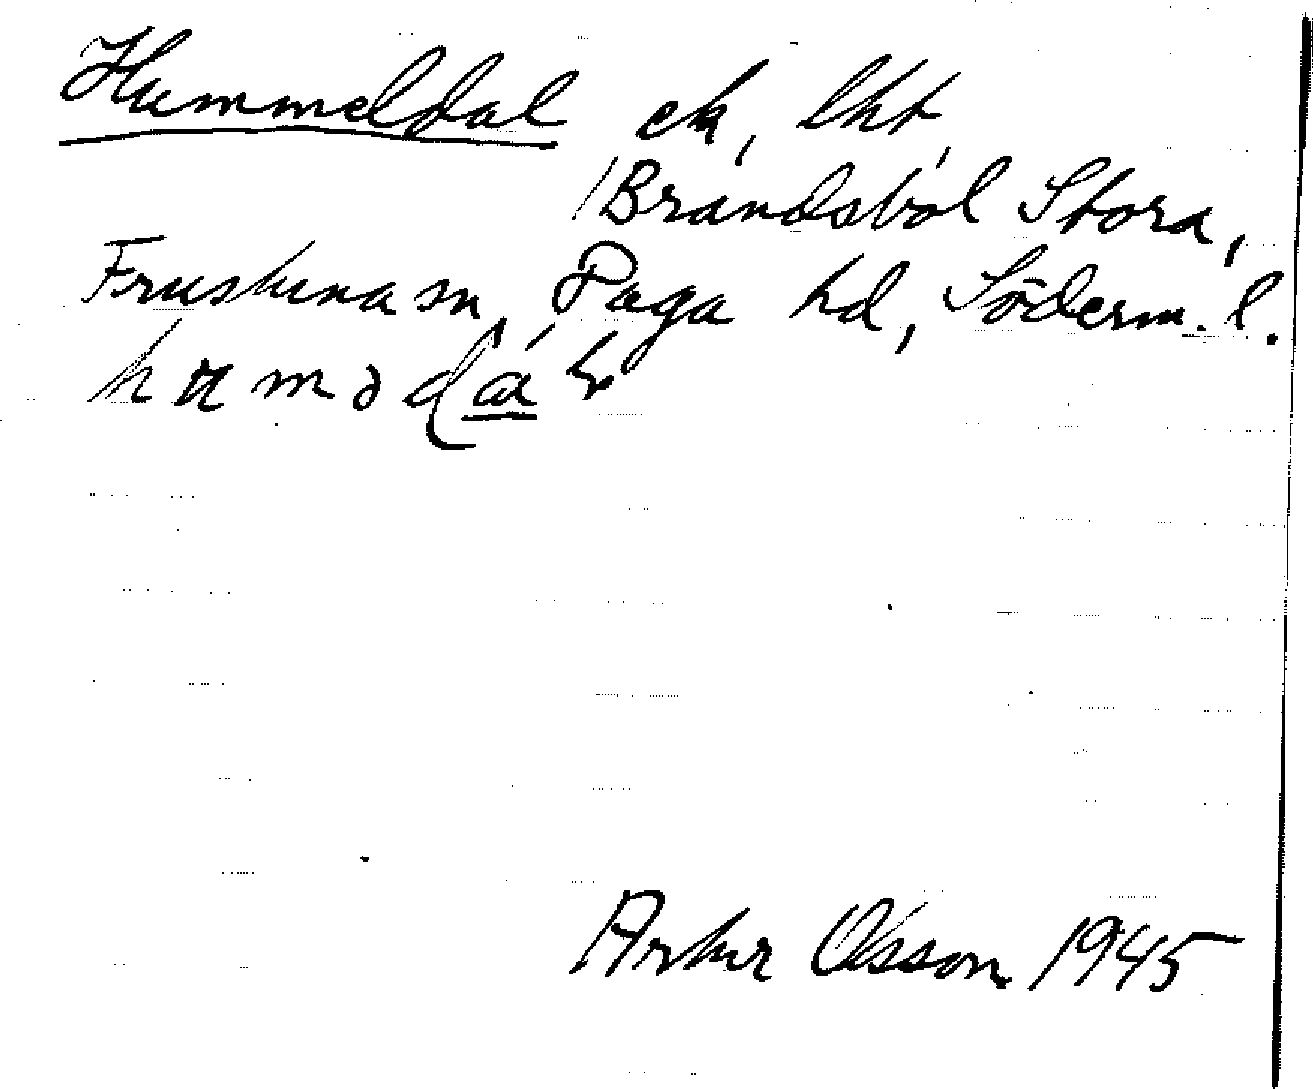 Hummeldal ek, lht,
Brandsbol Stora,
Frustuna sn, Daga hd, Söderm. l.
Artur Olsson 1945